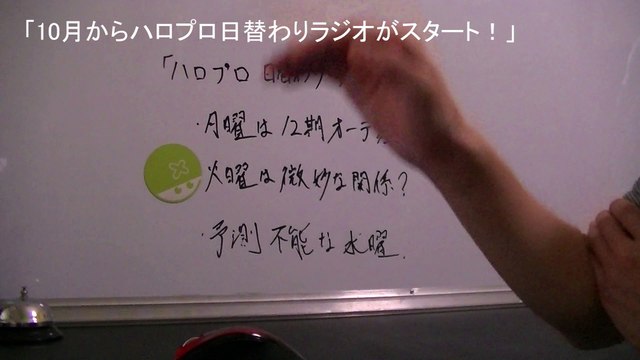 「10月からハロプロ日替わりラジオがスタート！」
「ハロプロ 日替わり
・月曜は12期オーデ
火曜は微妙な関係？
・予測不能な水曜